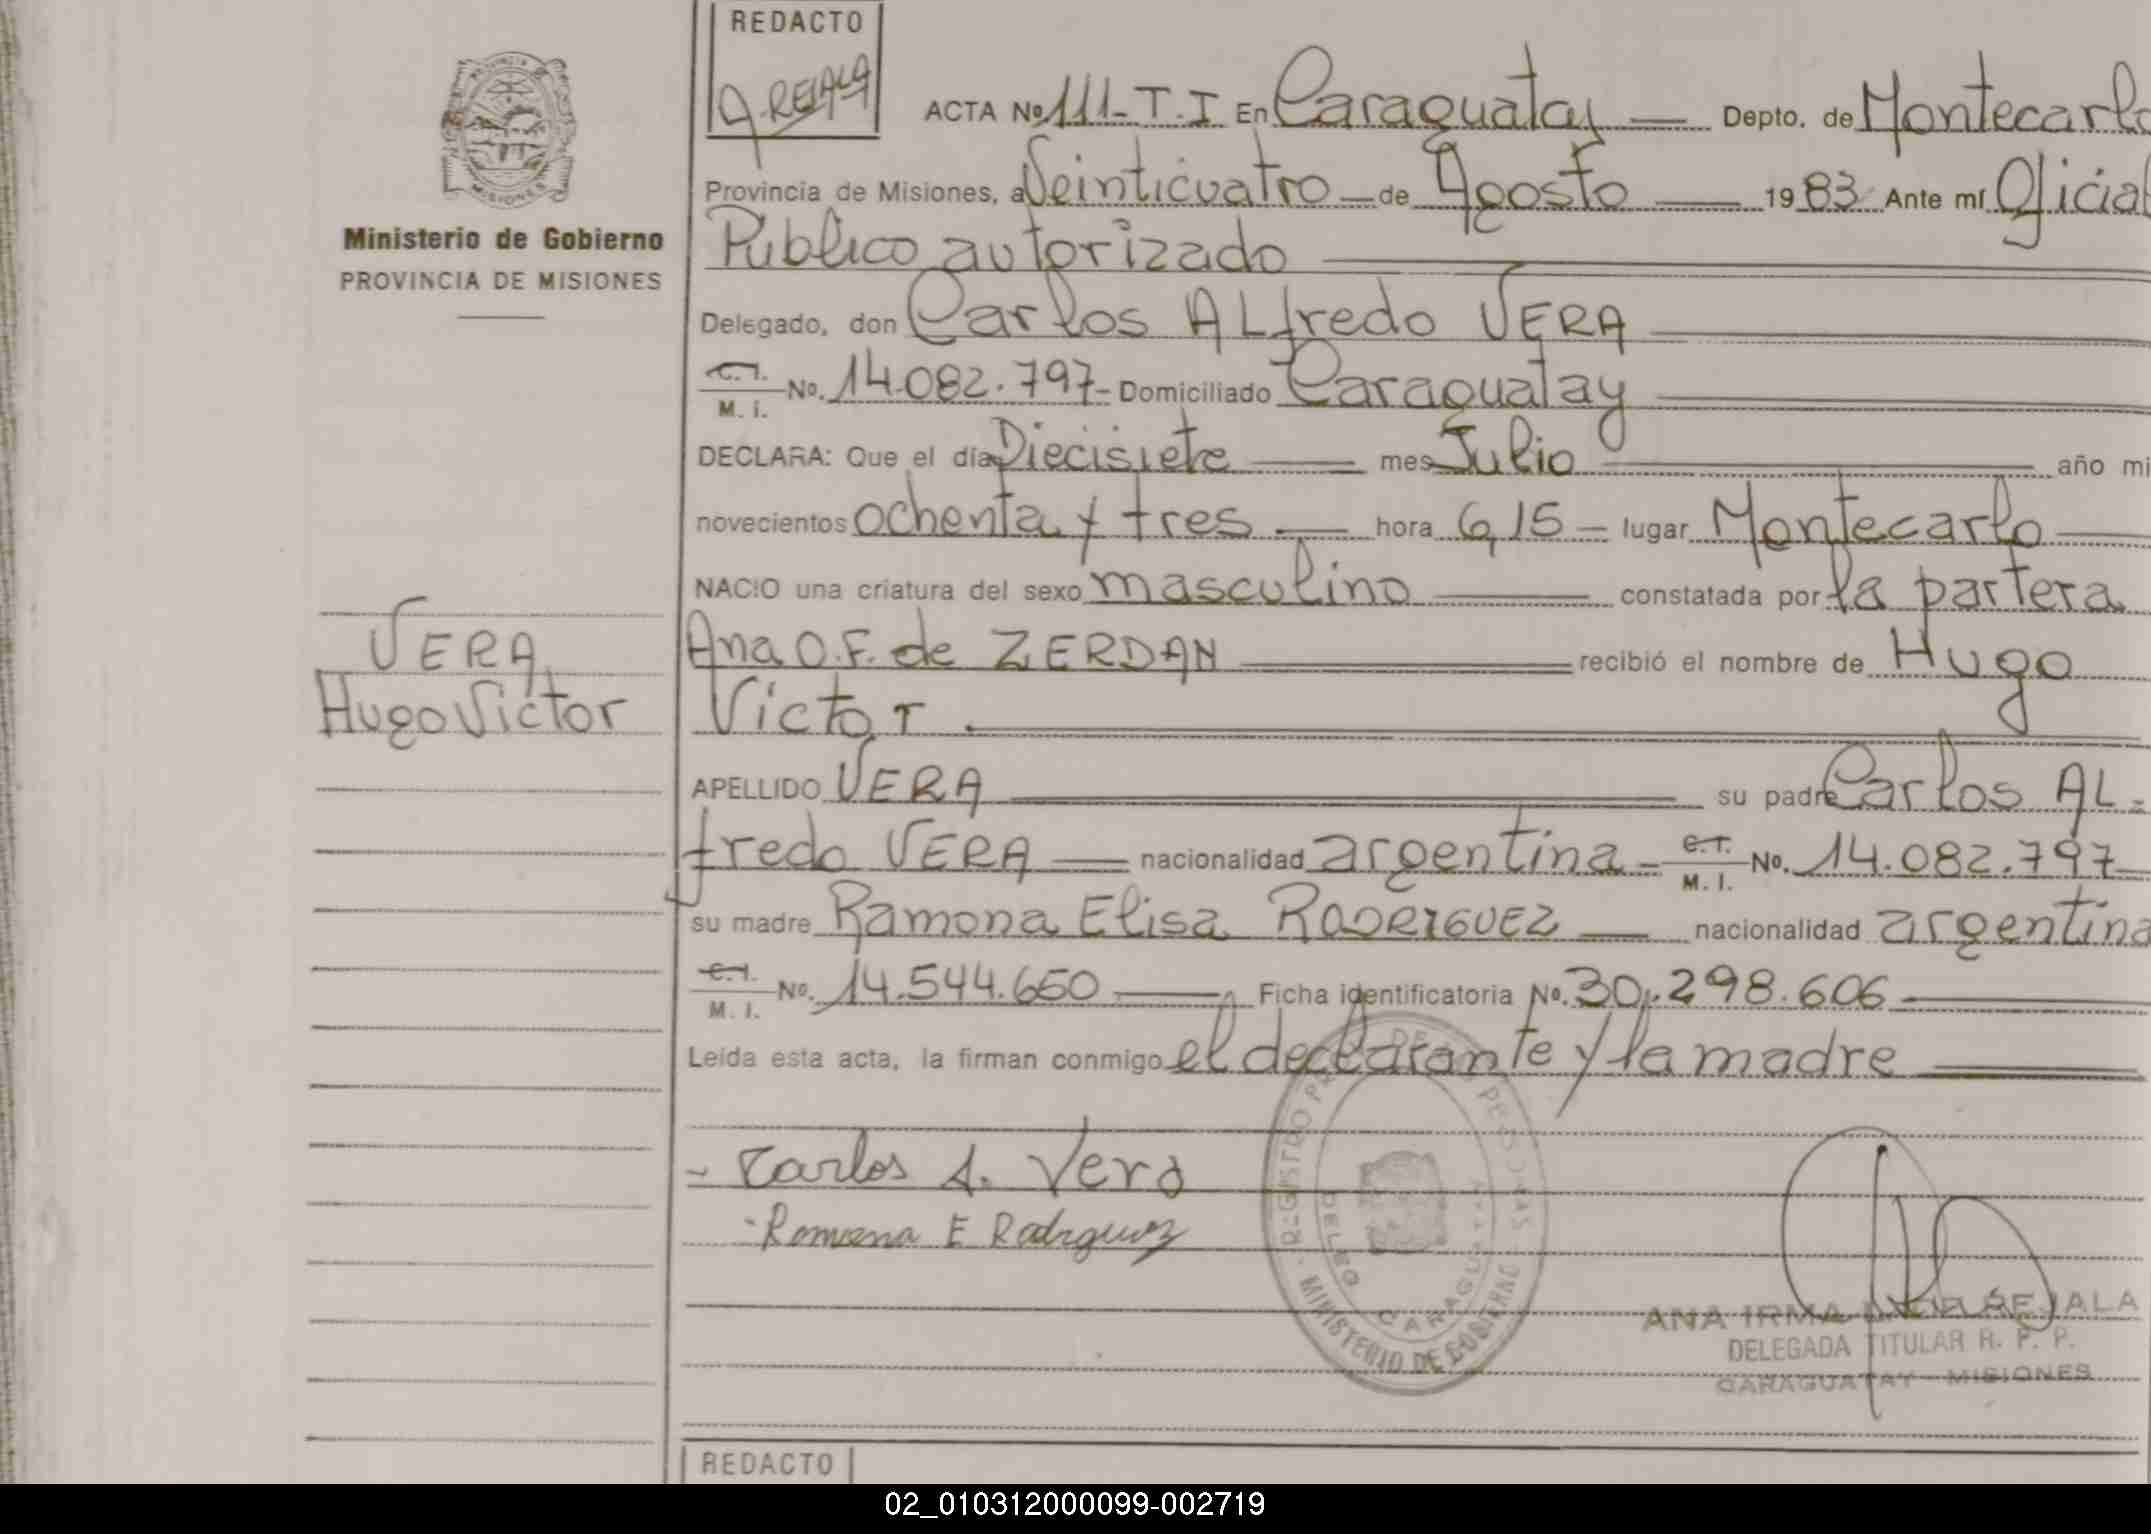 REDACTO
A. REJALA
ACTA Nº 111- T. I En Caraguatay — Depto. de Montecarlo
Provincia de Misiones, a Veinticuatro — de Agosto — 1983 Ante mí Oficial
Público autorizado
Ministerio de Gobierno
PROVINCIA DE MISIONES
Delegado, don Carlos ALfredo VERA
C. I. M. I. Nº. 14.082.797- Domiciliado Caraguatay
DECLARA: Que el día Diecisiete — mes Julio — año mi
novecientos ochenta y tres — hora 6,15 — lugar Montecarlo
NACIO una criatura del sexo masculino — constatada por la partera
Ana O.F. de ZERDAN — recibió el nombre de Hugo
Victor.
VERA
Hugo Victor
APELLIDO VERA — su padre Carlos AL=
fredo VERA — nacionalidad argentina - C. I. M. I. Nº. 14.082.797
su madre Ramona Elisa RODRIGUEZ — nacionalidad argentina
C. I. M. I. Nº. 14.544.660 — Ficha identificatoria Nº. 30.298.606
Leída esta acta, la firman conmigo el declarante y la madre
- Carlos A. Vera
- Ramona E Rodriguez
REGISTRO DE LAS PERSONAS
MINISTERIO DE GOBIERNO
DELEG. CARAGUATAY
ANA IRMA REJALA
DELEGADA TITULAR R. P. P.
CARAGUATAY - MISIONES
REDACTO
02_010312000099-002719